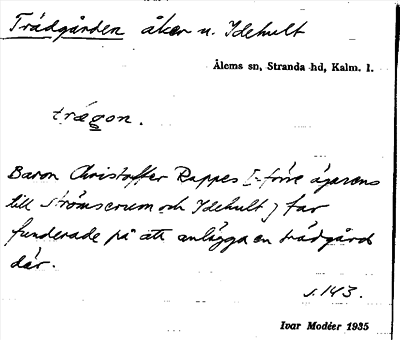 Trädgården åker u. Idehult
Ålems sn, Stranda hd, Kalm. l.
trægon.
Baron Christoffer Rappes [förre ägarens
till Strömserum och Idehult] far
funderade på att anlägga en trädgård
där.
s. 143.
Ivar Modéer 1935